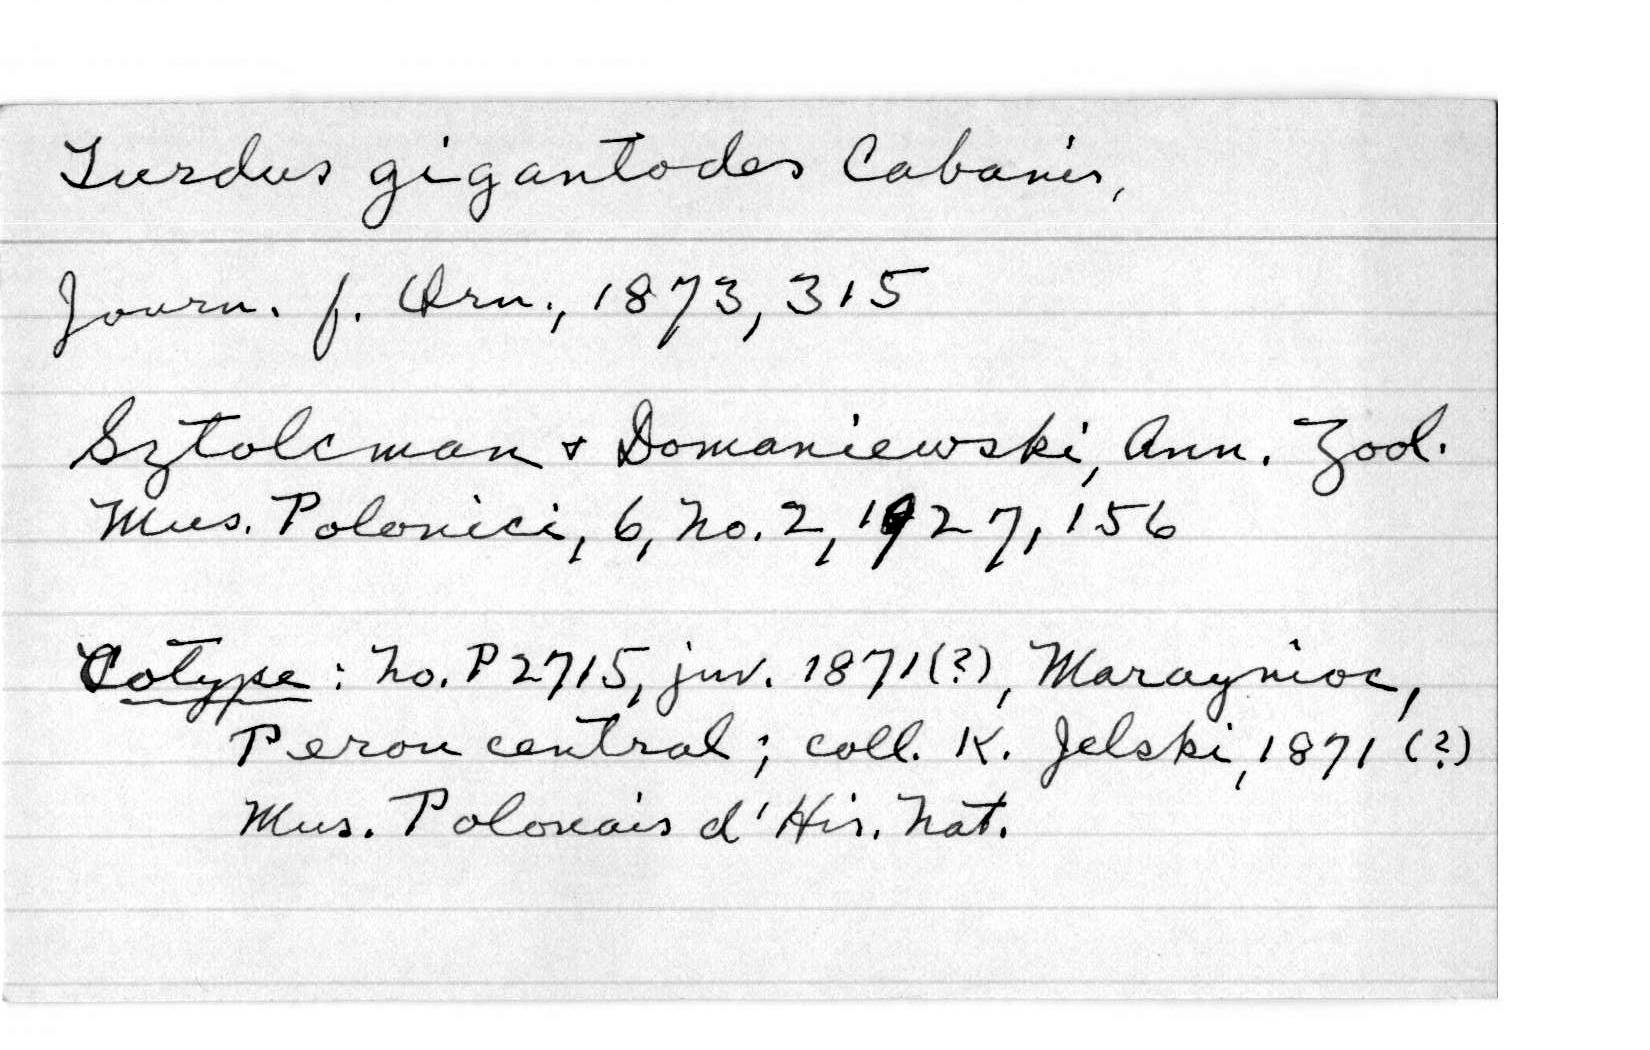 Turdus gigantodes Cabanis,
Journ. f. Orn., 1873, 315
Sztolcman & Domaniewski, Ann. Zool.
Mus. Polonici, 6, No. 2, 1927, 156
Cotype: No. P 2715, juv. 1871(?), Maraynioc,
Perou central; coll. K. Jelski, 1871 (?)
Mus. Polonais d'His. Nat.